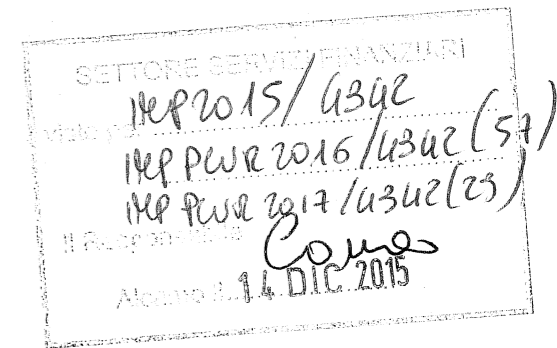 SETTORE SERVIZI FINANZIARI
IMP 2015/4342
IMP PLUR 2016/4342 (57)
IMP PLUR 2017/4342 (23)
Il Responsabile
Alcamo lì 14 DIC. 2015